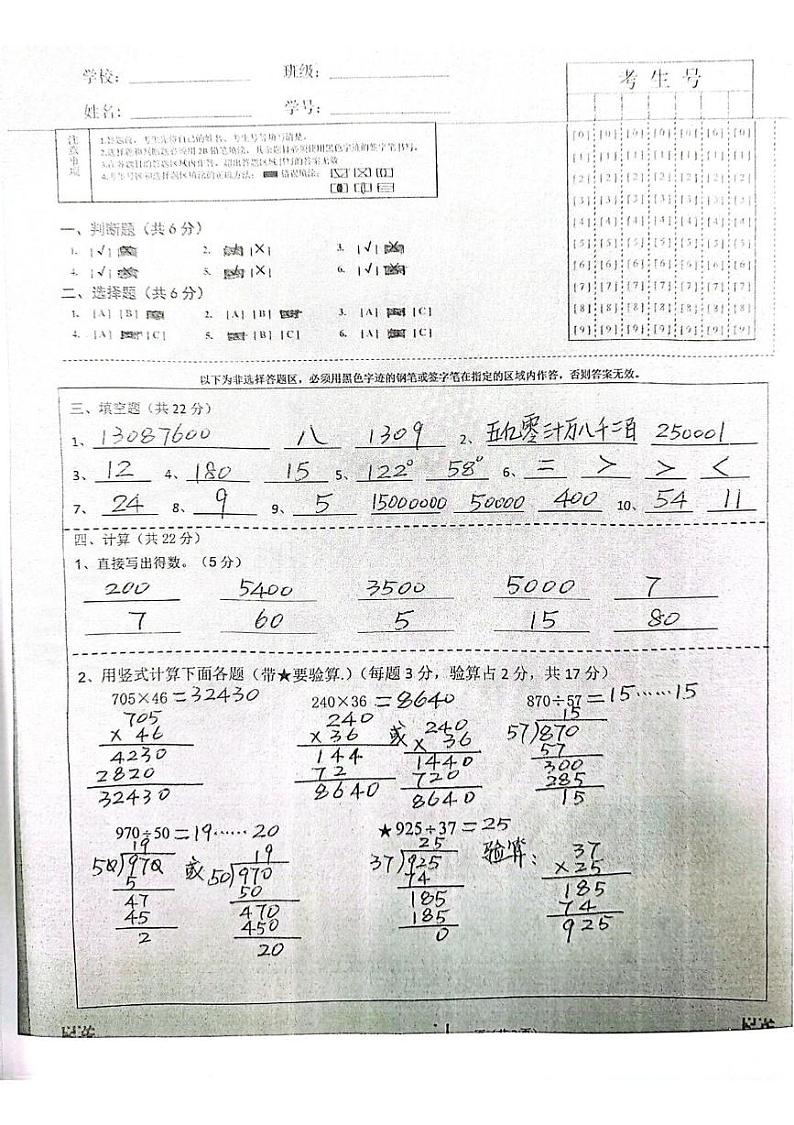 学校： 班级： 考生号
姓名： 学号：
注意事项
1.答题前，考生先将自己的姓名、考生号等填写清楚。
2.选择题和判断题必须用2B铅笔填涂，其余题目必须使用黑色字迹的签字笔书写。
3.在各题目的答题区域内作答，超出答题区域书写的答案无效
4.考生号区和选择题区填涂的正确方法： 错误填涂：
[0] [0] [0] [0] [0] [0] [0]
[1] [1] [1] [1] [1] [1] [1]
[2] [2] [2] [2] [2] [2] [2]
[3] [3] [3] [3] [3] [3] [3]
[4] [4] [4] [4] [4] [4] [4]
[5] [5] [5] [5] [5] [5] [5]
[6] [6] [6] [6] [6] [6] [6]
[7] [7] [7] [7] [7] [7] [7]
[8] [8] [8] [8] [8] [8] [8]
[9] [9] [9] [9] [9] [9] [9]
一、判断题（共6分）
1. [√] 2. [×] 3. [√]
4. [√] 5. [×] 6. [√]
二、选择题（共6分）
1. [A] [B] 2. [A] [B] 3. [A] [C]
4. [A] [C] 5. [B] [C] 6. [A] [C]
以下为非选择答题区，必须用黑色字迹的钢笔或签字笔在指定的区域内作答，否则答案无效。
三、填空题（共22分）
1、 13087600 八 1309 2、 五亿零三十万八千三百 250001
3、 12 4、 180 15 5、 122° 58° 6、 = > > <
7、 24 8、 9 9、 5 15000000 50000 400 10、 54 11
四、计算（共22分）
1、直接写出得数。（5分）
200 5400 3500 5000 7
7 60 5 15 80
2、用竖式计算下面各题（带★要验算.）（每题3分，验算占2分，共17分）
705×46=32430 240×36=8640 870÷57=15……15
705 240 或 240 15
× 46 × 36 × 36 57)870
4230 144 1440 57
2820 72 720 300
32430 8640 8640 285
15
970÷50=19……20 ★925÷37=25
19 或 19 25 验算： 37
50)970 50)970 37)925 ×25
5 50 74 185
47 470 185 74
45 450 185 925
2 20 0